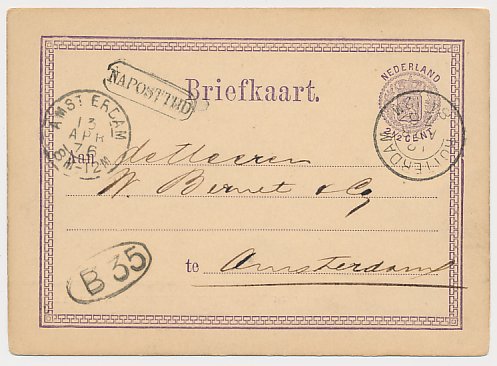 NAPOSTTIJD
Briefkaart.
NEDERLAND
2½ CENT
AMSTERDAM
13
APR
76
8M-12M
ROTTERDAM
12
Aan de Heeren
W. Bernet & Co
te Amsterdam
B 35